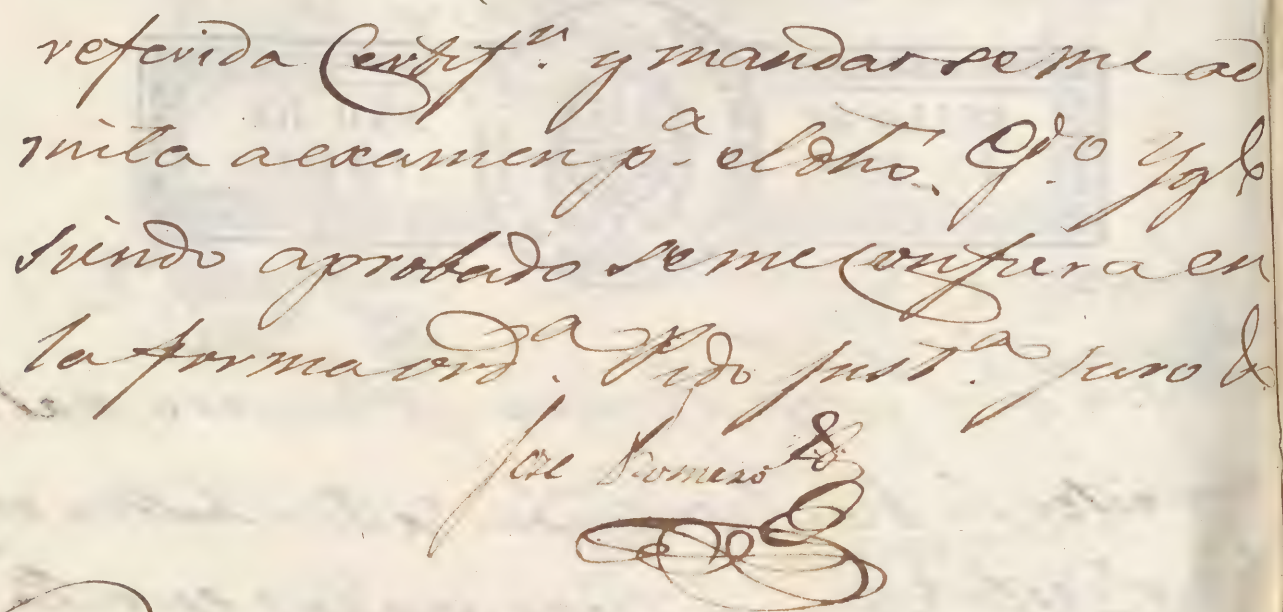 referida Certif.n y mandar se me ad
mita a examen p.a el dho. G.do y q.e
siendo aprobado se me confiera en
la forma ord.a Pido just.a juro &
Jose Romero